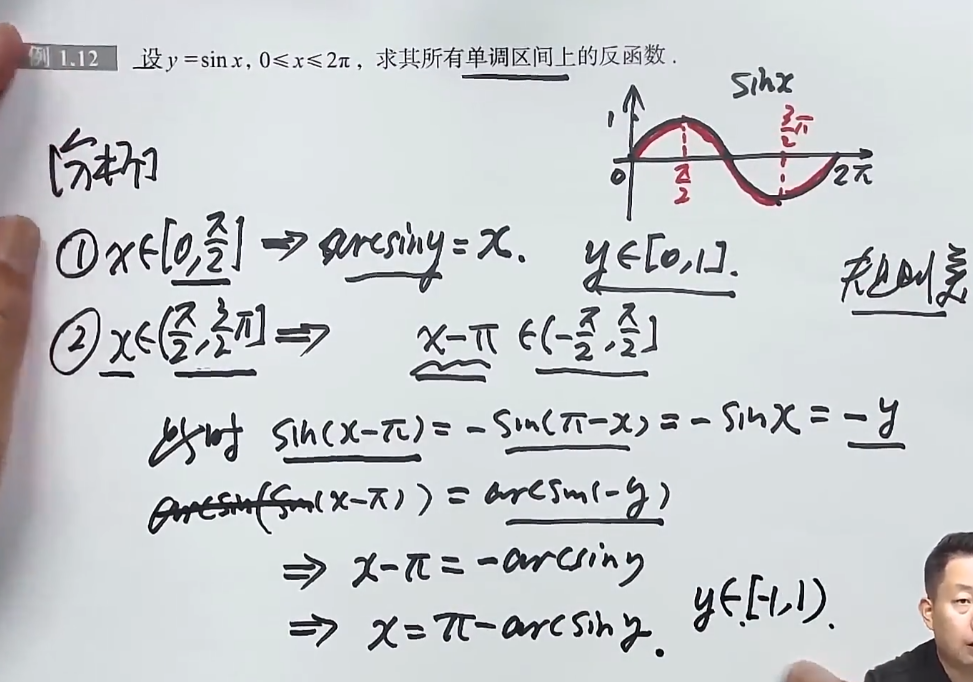 例 1.12 设 y = sin x, 0 ≤ x ≤ 2π, 求其所有单调区间上的反函数.
sinx
1
3/2 π
0
π/2
2π
[分析]
① x∈[0, π/2] ⇒ arcsiny = x. y∈[0,1].
② x∈(π/2, 3/2 π] ⇒ x-π ∈(-π/2, π/2]
此时 sin(x-π) = -sin(π-x) = -sinx = -y
arcsin(sin(x-π)) = arcsin(-y)
⇒ x-π = -arcsiny
⇒ x = π-arcsiny. y∈[-1,1).